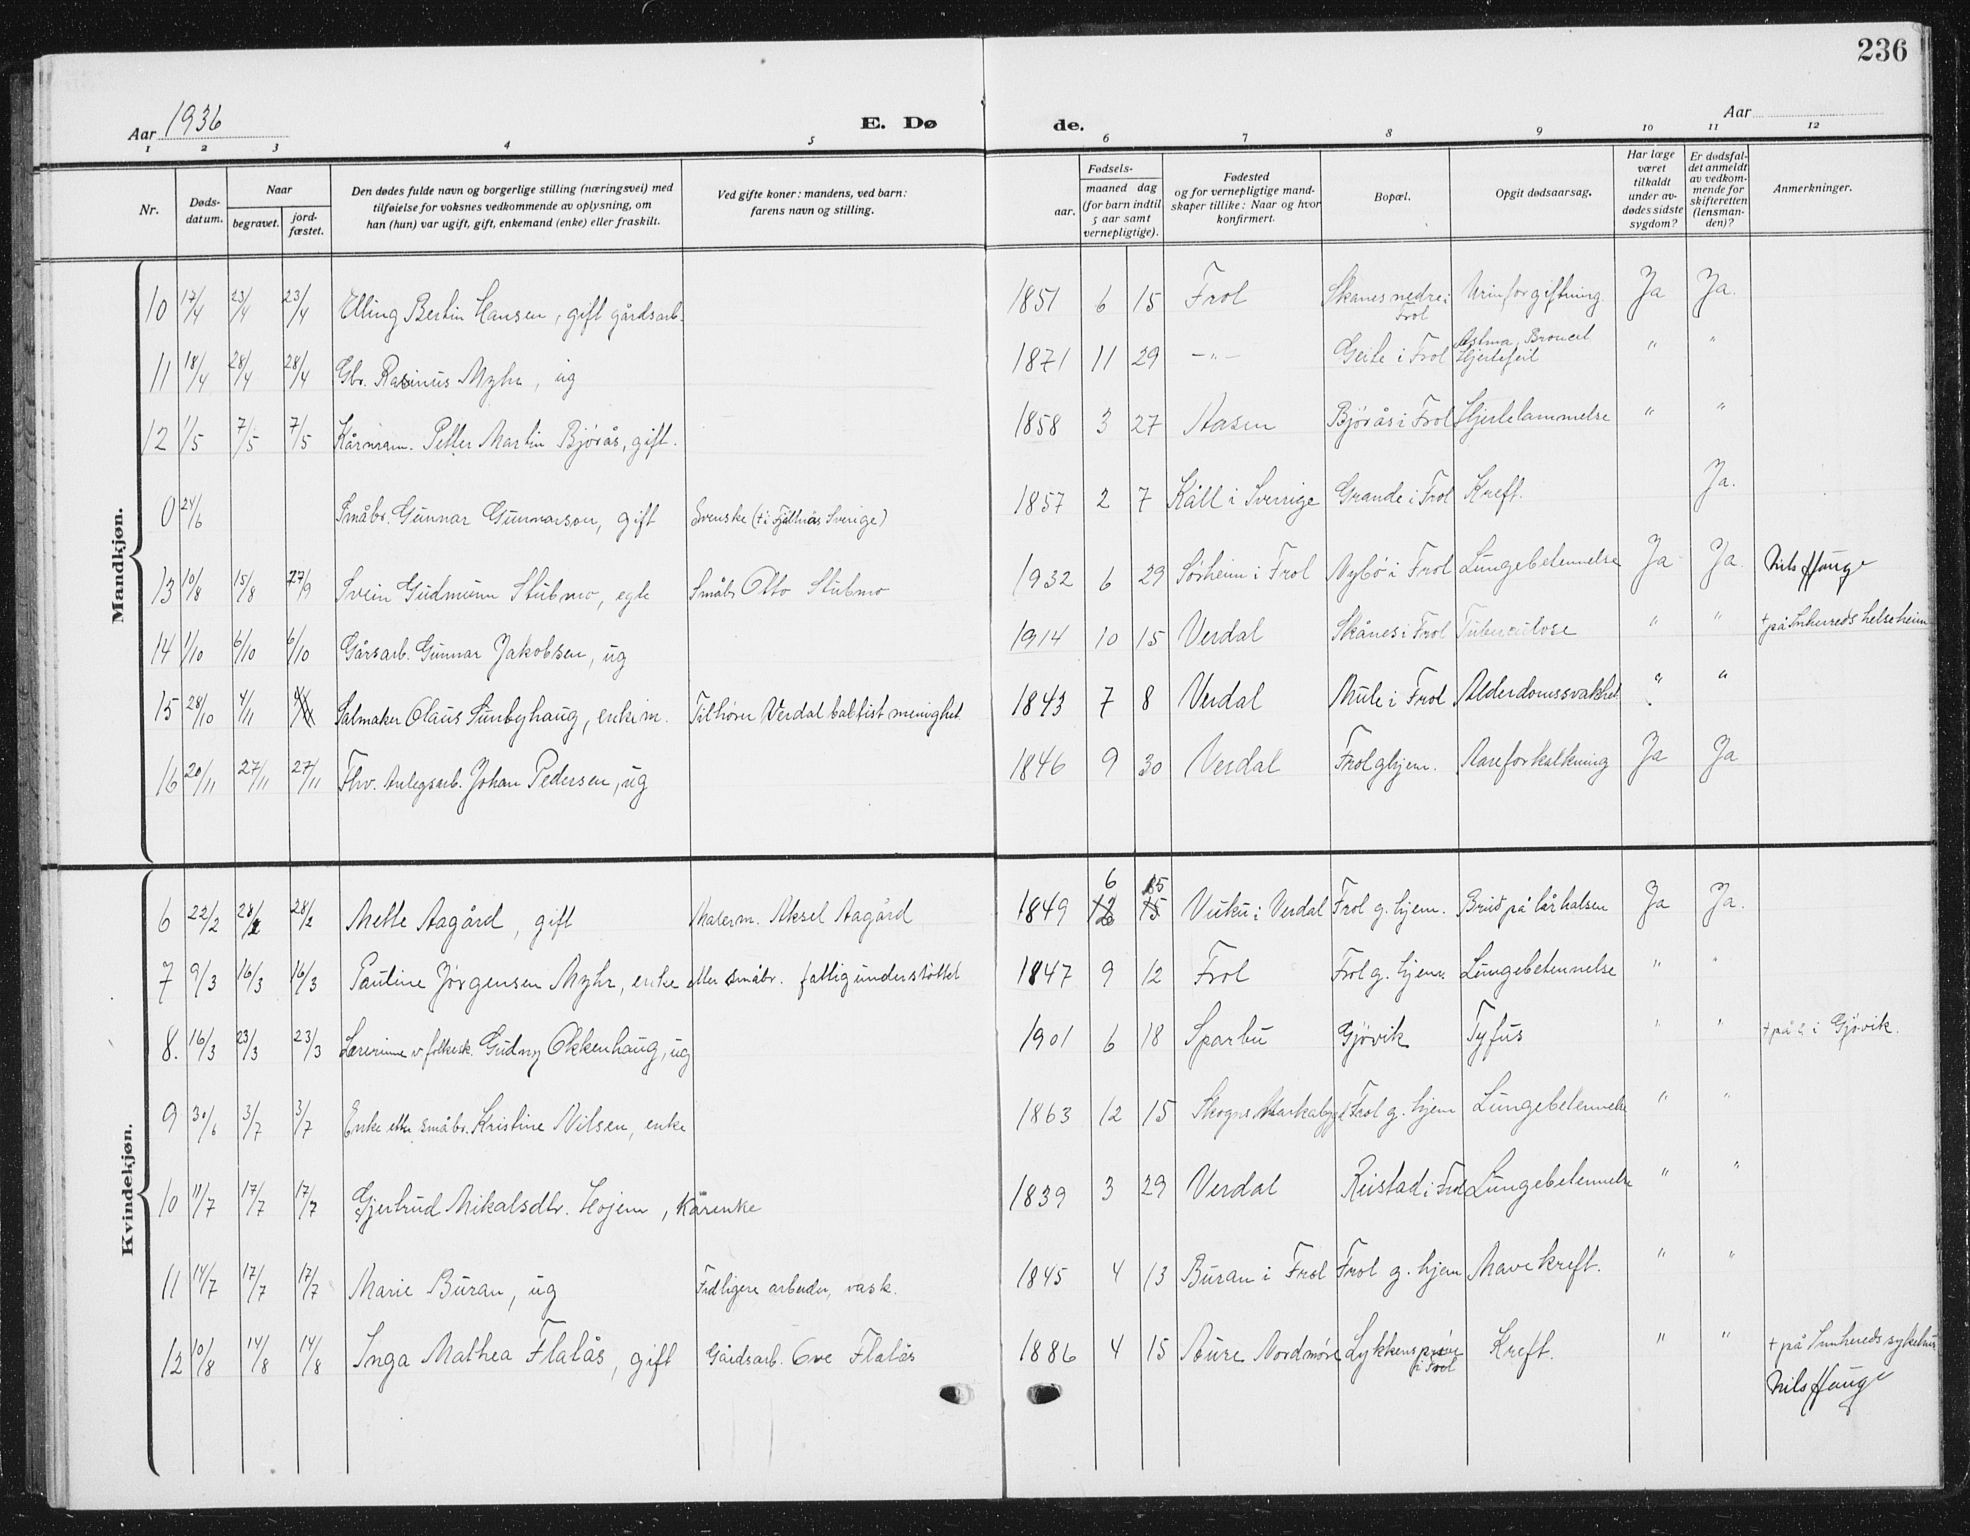 236
Aar 1936
E. Dø
de.
Aar
1 2 3 4 5 6 7 8 9 10 11 12
Nr.
Døds-
datum.
Naar
begravet.
jord-
fæstet.
Den dødes fulde navn og borgerlige stilling (næringsvei) med
tilføielse for voksnes vedkommende av oplysning, om
han (hun) var ugift, gift, enkemand (enke) eller fraskilt.
Ved gifte koner: mandens, ved barn:
farens navn og stilling.
Fødsels-
aar.
maaned dag
(for barn indtil
5 aar samt
vernepligtige).
Fødested
og for vernepligtige mand-
skaper tillike: Naar og hvor
konfirmert.
Bopæl.
Opgit dødsaarsag.
Har læge
været
tilkaldt
under av-
dødes sidste
sygdom?
Er dødsfal-
det anmeldt
av vedkom-
mende for
skifteretten
(lensman-
den)?
Anmerkninger.
Mandkjøn.
10 17/4 23/4 23/4 Elling Bertin Hansen, gift gårdsarb. 1851 6 15 Frol Skanes nedre i Frol Urinforgiftning. Ja Ja.
11 18/4 28/4 28/4 Gbr. Rasinus Myhr, ug 1871 11 29 —"— Geite i Frol Astma, Broncit Hjertefeil " "
12 1/5 7/5 7/5 Kårmam. Petter Martin Bjørås, gift. 1858 3 27 Aasen Bjørås i Frol Hjertelammelse " "
0 24/6 Småbr. Gunnar Gunnarson, gift Svenske († i Fjällnäs Sverige) 1857 2 7 Kåll i Sverrige Grande i Frol Kreft. Ja.
13 10/8 15/8 27/9 Svein Gudmunn Stubmo, egte Småbr Otto Stubmo 1932 6 29 Sørheim i Frol Nybø i Frol Lungebetennelse Ja Ja. Nils Hauge
14 1/10 6/10 6/10 Gårsarb. Gunnar Jakobsen, ug 1914 10 15 Verdal Skånes i Frol Tuberculose " " † på Inherreds helseheim
15 28/10 4/11 Salmaker Olaus Sunbyhaug, enkem. Tilhører Verdal baltist menighet 1843 7 8 Verdal Mule i Frol Alderdomssvakhet " "
16 20/11 27/11 27/11 Fhv. Anlegsarb. Johan Pedersen, ug 1846 9 30 Verdal Frol ghjem. Aareforkalkning Ja Ja
Kvindekjøn.
6 22/2 28/2 28/2 Mette Aagård, gift Malerm. Aksel Aagård 1849 6 15 Vuku i Verdal Frol g. hjem. Brud på lårhalsen Ja Ja.
7 9/3 16/3 16/3 Pauline Jørgensen Myhr, enke etter småbr. fattigunderstøttet 1847 9 12 Frol Frol g. hjem. Lungebetennelse " "
8. 16/3 23/3 23/3 Lærerinne v folkesk. Gudny Okkenhaug, ug 1901 6 18 Sparbu Gjøvik Tyfus " " † på s. i Gjøvik.
9 30/6 3/7 3/7 Enke etter småbr. Kristine Nilsen, enke 1863 12 15 Skogn Markabygd Frol g. hjem Lungebetennelse " "
10 11/7 17/7 17/7 Gjertrud Mikalsdtr. Hojem, Kårenke 1839 3 29 Verdal Reistad i Frol Lungebetennelse " "
11 14/7 17/7 17/7 Marie Buran, ug Tidligere arbeider, vask. 1845 4 13 Buran i Frol Frol g. hjem Mavekreft. " "
12 10/8 14/8 14/8 Inga Mathea Flatås, gift Gårdsarb. Ove Flatås 1886 4 15 Aure Nordmøre Lykkensprøve i Frol Kreft. " " † på Innhereds sykehus
Nils Hauge